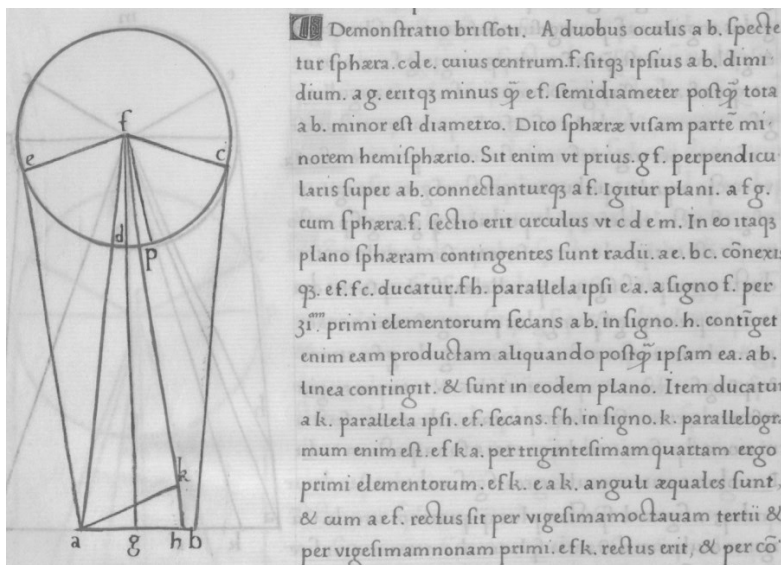 m
e
f
c
d
p
k
a g h b
Demonſtratio briſſoti. A duobus oculis a b. ſpecte
tur ſphæra. c d e. cuius centrum. f. ſitqꝫ ipſius a b. dimi
dium. a g. eritqꝫ minus qꝫ̃ e f. ſemidiameter poſtqꝫ̃ tota
a b. minor eſt diametro. Dico ſphæræ viſam partẽ mi
norem hemiſphærio. Sit enim vt prius. g f. perpendicu
laris ſuper a b. connectanturqꝫ a f. Igitur plani. a f g.
cum ſphæra. f. ſectio erit circulus vt c d e m. In eo itaqꝫ
plano ſphæram contingentes ſunt radii. a e. b c. cõnexi
qꝫ. e f. f c. ducatur. f h. parallela ipſi e a. a ſigno f. per
31.am primi elementorum ſecans a b. in ſigno. h. contĩget
enim eam productam aliquando poſtqꝫ̃ ipſam e a. a b.
linea contingit. & ſunt in eodem plano. Item ducatur
a k. parallela ipſi. e f. ſecans. f h. in ſigno. k. parallelogr
mum enim eſt. e f k a. per triginteſimam quartam ergo
primi elementorum. e f k. e a k. anguli æquales ſunt,
& cum a e f. rectus ſit per vigeſimamoctauam tertii &
per vigeſimamnonam primi. e f k. rectus erit, & per cõ